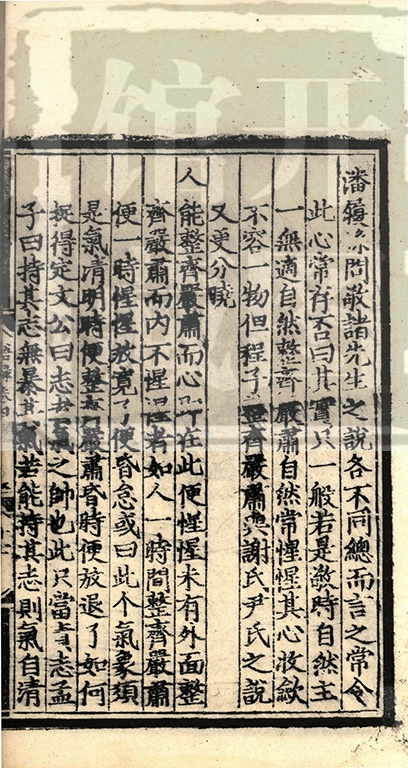 潘頴叔問敬諸先生之說各不同總而言之常令
此心常存否曰其實只一般若是敬時自然主
一無適自然整齊嚴肅自然常惺惺其心收斂
不容一物但程子整齊嚴肅與謝氏尹氏之說
又更分曉
人能整齊嚴肅而心便在此便惺惺未有外面整
齊嚴肅而內不惺惺者如人一時間整齊嚴肅
便一時惺惺放寬了便昏怠或曰此个氣象須
是氣清明時便整齊嚴肅昏時便放退了如何
捉得定文公曰志者氣之帥也此只當責志孟
子曰持其志無暴其氣若能持其志則氣自清